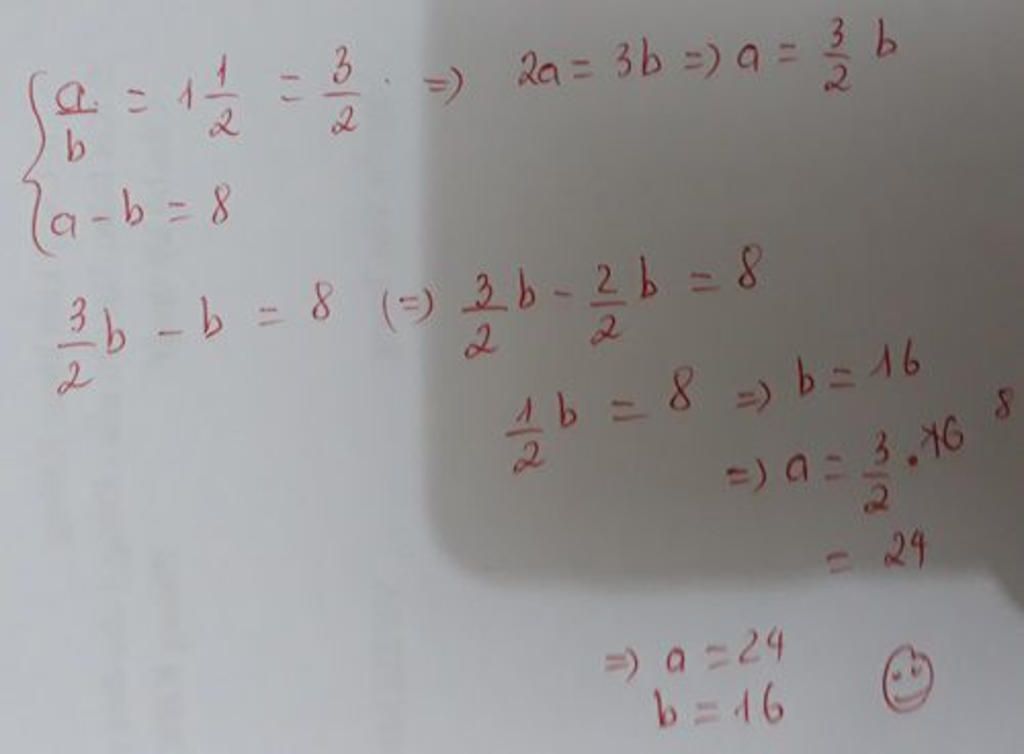 { a/b = 1 1/2 = 3/2 . => 2a = 3b => a = 3/2 b
a - b = 8
3/2 b - b = 8 (=) 3/2 b - 2/2 b = 8
1/2 b = 8 => b = 16
=> a = 3/2 . 16 8
= 24
=> a = 24
b = 16